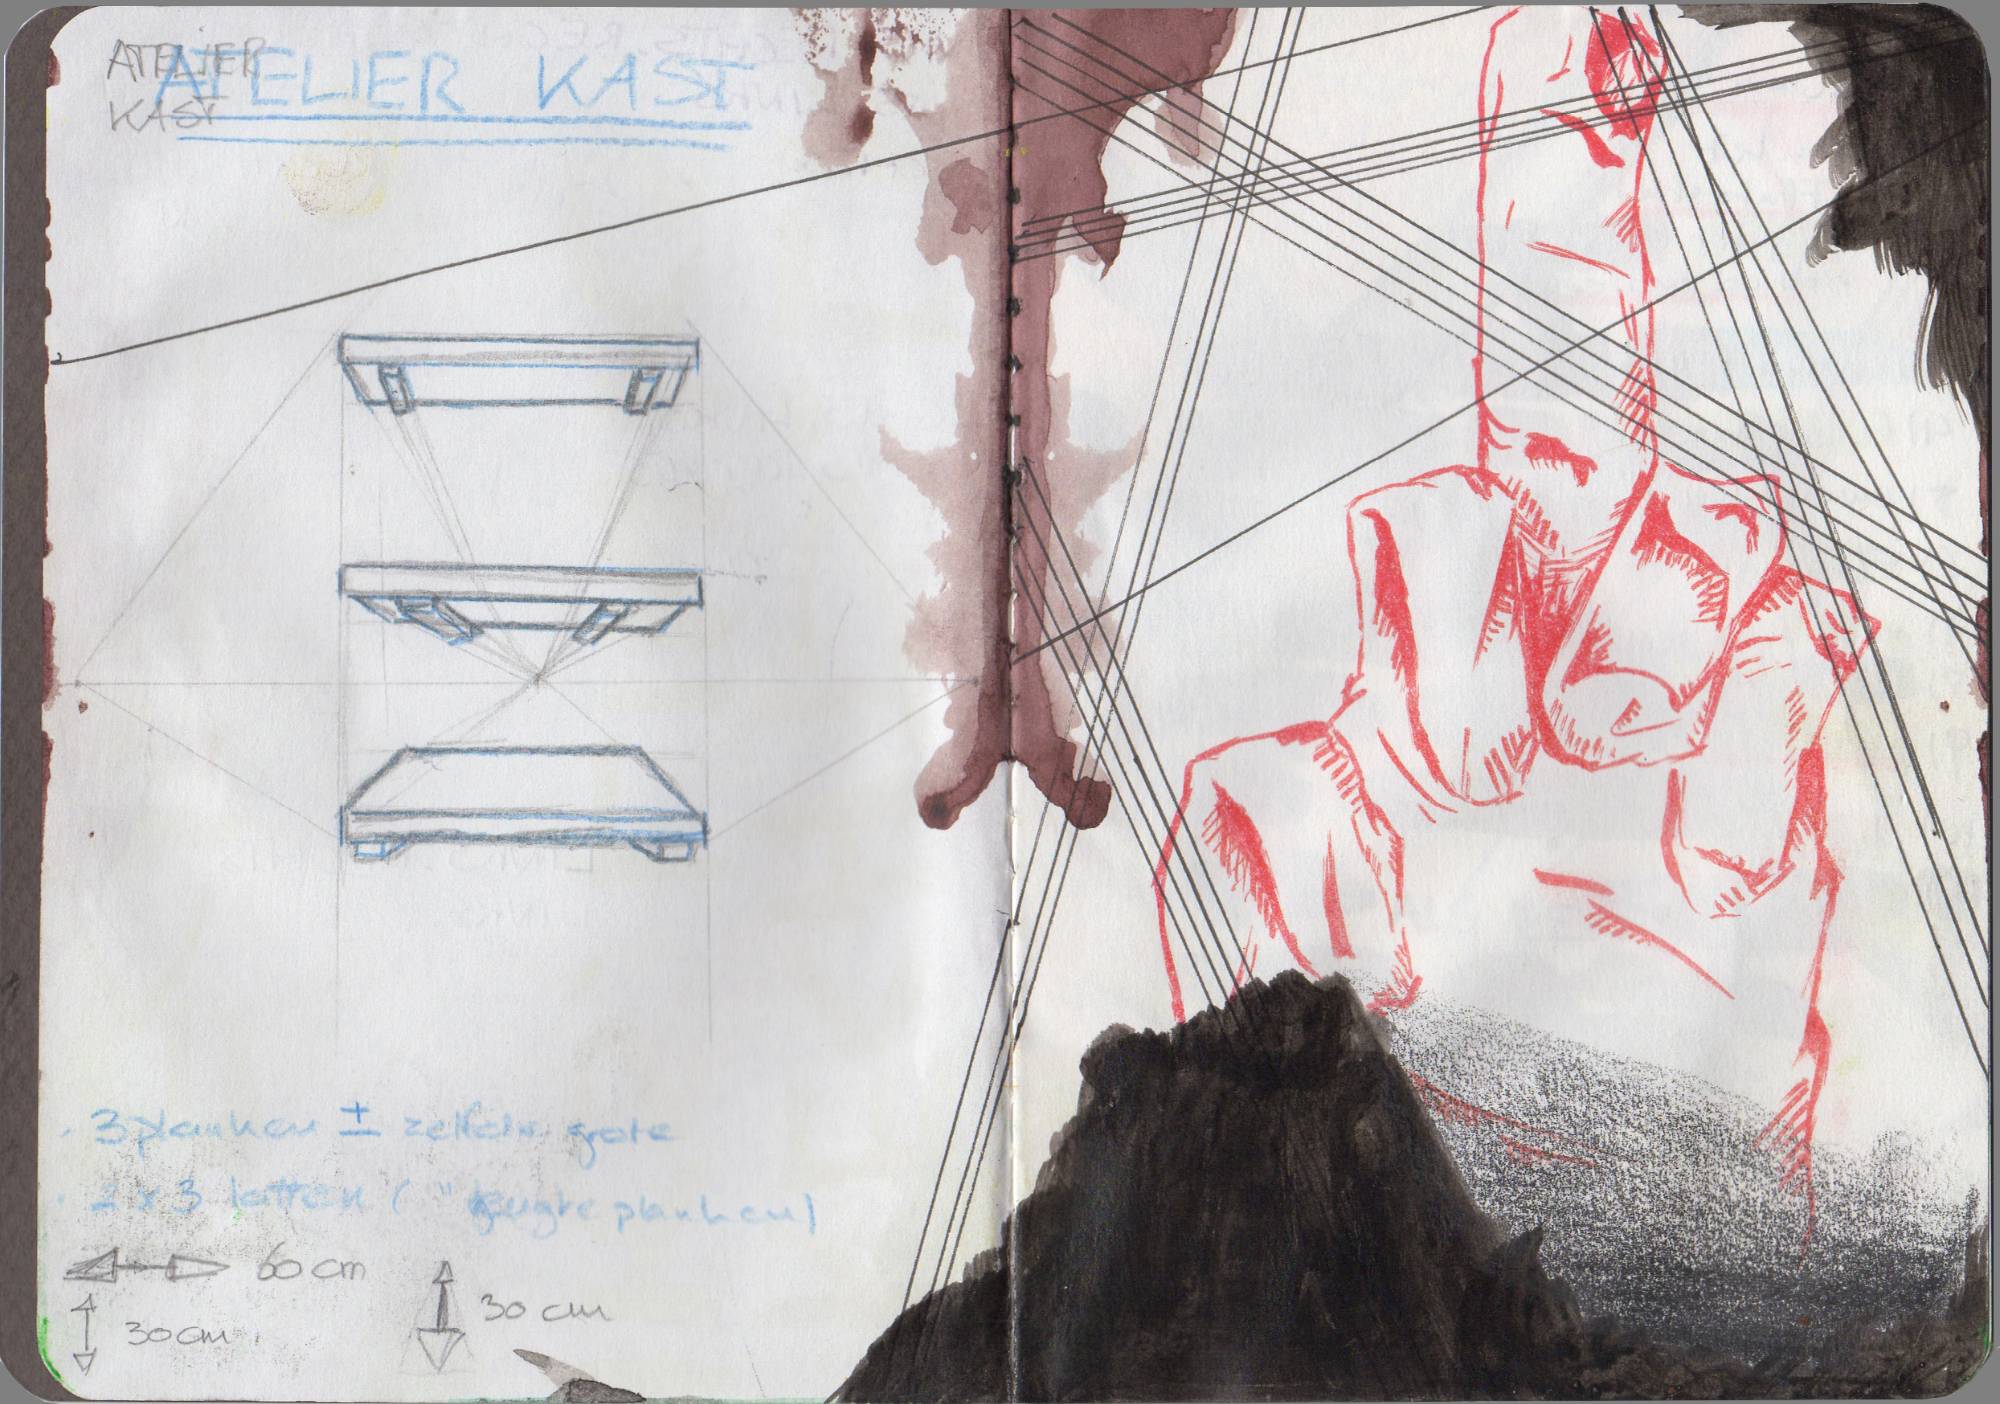 ATELIER
KAST
ATELIER KAST
· 3 planken ± zelfde grote
· 2 x 3 latten ( " planken)
60 cm
30 cm
30 cm